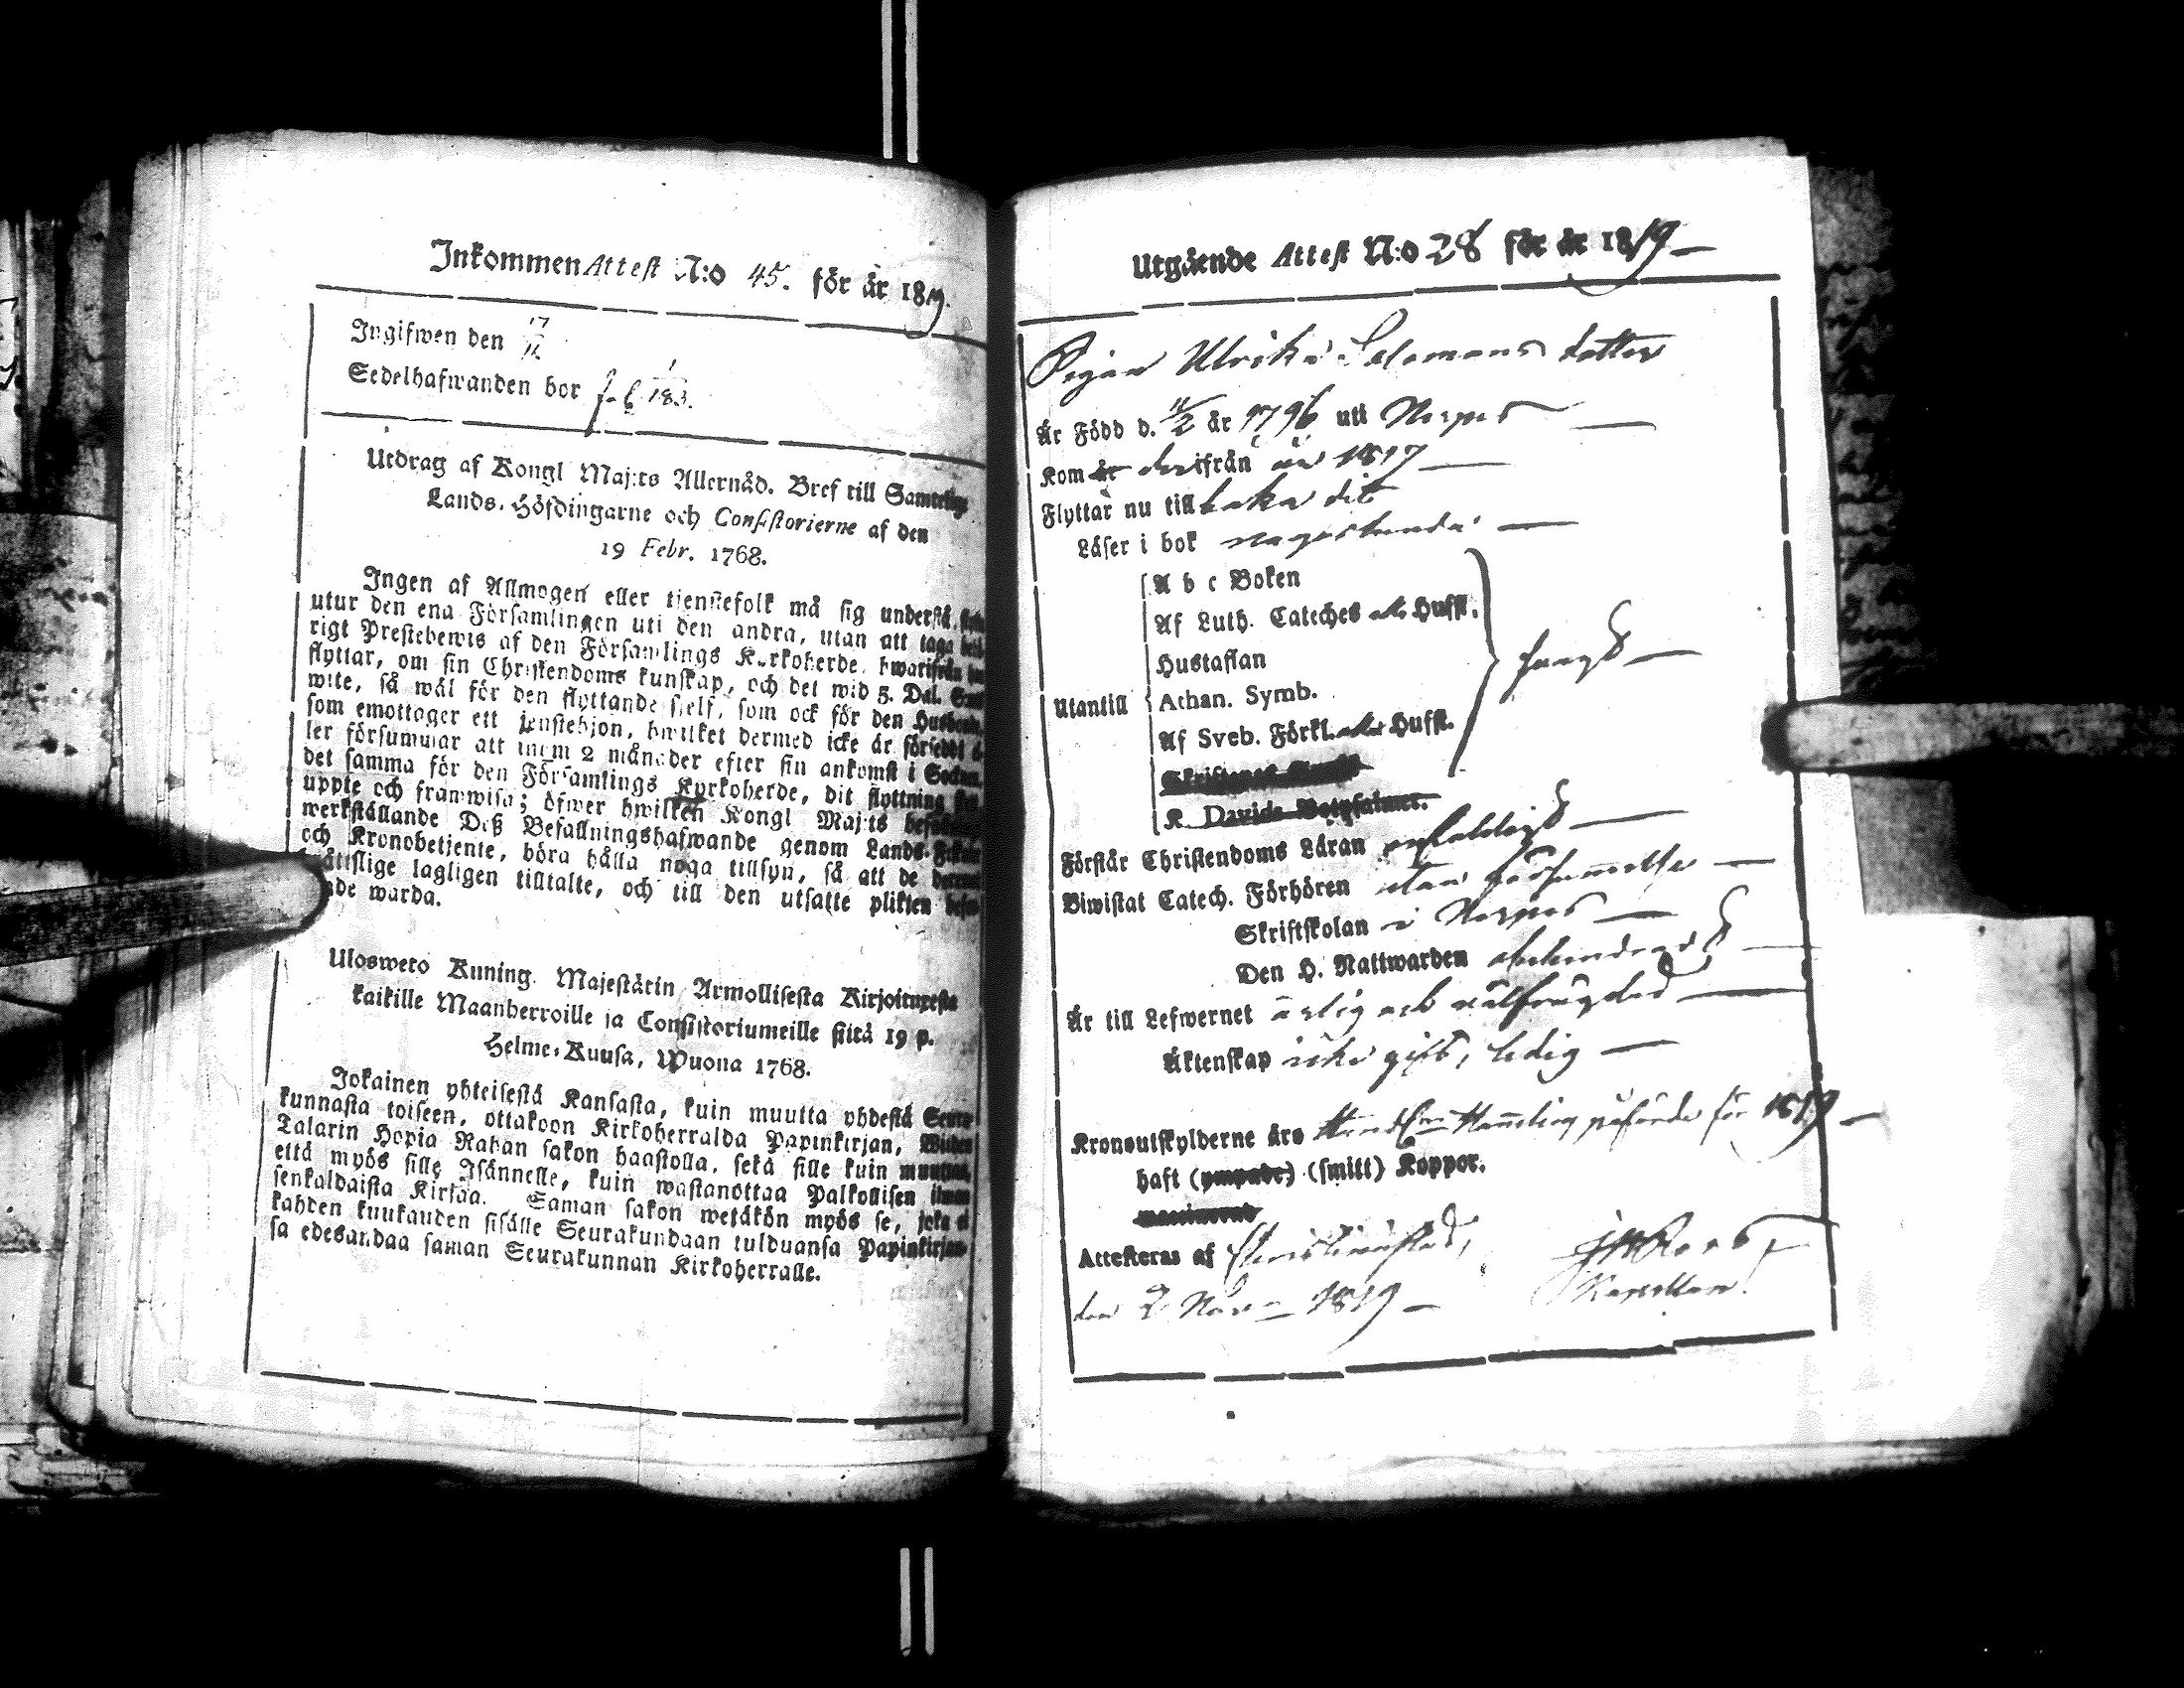 Inkommen Attest N:o 45. för år 1819.
Ingifwen den 17/12
Sedelhafwanden bor fol 183.
Utdrag af Kongl Maj:ts Allernåd. Bref till Samtelige
Lands-Höfdingarne och Consistorierne af den
19 Febr. 1768.
Ingen af Allmogen eller tjenstefolk må sig understå,
utur den ena Församlingen uti den andra, utan att taga
rigt Prestebewis af den Församlings Kyrkoherde, hwarifrån
flyttar, om sin Christendoms kunskap, och det wid 5. Dal.
wite, så wäl för den flyttande sjelf, som ock för den Husbonde,
som emottager ett tjenstehjon, hwilket dermed icke är försedt
ler försummar att inom 2 månader efter sin ankomst i Socken,
det samma för den Församlings Kyrkoherde, dit flyttning
uppte och framwisa; öfwer hwilken Kongl Maj:ts
werkställande Dess Befallningshafwande genom Lands-Fiskaler
och Kronobetjente, böra hålla noga tillsyn, så att de
lagligen tilltalte, och till den utsatte plikten
warda.
Uloswero Kuning. Majestätin Armollisesta Kirjoituxesta
kaikille Maanherroille ja Consistoriumeille siitä 19 p.
Helme-Kuusa, Wuona 1768.
Jokainen yhteisestä Kansasta, kuin muutta yhdestä Seura-
kunnasta toiseen, ottakoon Kirkoherralda Papinkirjan,
Talarin Hopia Rahan sakon haastolla, sekä sille kuin
että myös sille Isännelle, kuin wastanottaa Palkollisen ilman
senkaldaista Kirjaa. Saman sakon wetäkön myös se, joka ei
kahden kuukauden sisälle Seurakundaan tulduansa Papinkirjan-
sa edesandaa saman Seurakunnan Kirkoherralle.
Utgående Attest N:o 28 för år 1819
Pigan Ulrika Salomons dotter
Är Född d. 11/2 år 1796 uti Nerpes
Kom derifrån år 1817
Flyttar nu tillbaka dit
Läser i bok någorlunda
A b c Boken
Af Luth. Cateches Huffl.
Hustaflan
Utantill Athan. Symb.
Af Sveb. Förkl. Huffl.
K Davids Botpsalmer.
Förstår Christendoms Läran enfaldigt
Biwistat Catech. Förhören utan försummelse
Skriftskolan i Nerpes
Den H. Nattwarden
Är till Lefwernet ärlig och wälfrägdad
Äktenskap icke gift, ledig
Kronoutskylderne äro påförde för 1819
haft (ympade) (smitt) Koppor.
Attesteras af Christinestad,
den 2 Nov. 1819
Kapellan.